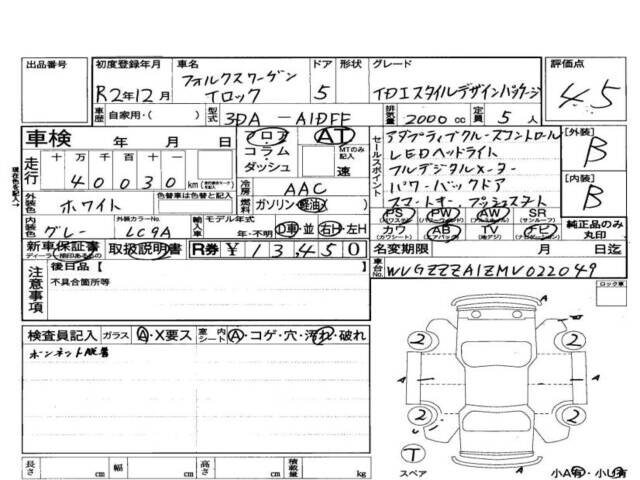 出品番号 初度登録年月 車名 ドア 形状 グレード 評価点
R2年12月 フォルクスワーゲン Tロック 5 TDIスタイルデザインパッケージ 4.5
車歴 自家用・( ) 型式 3DA-A1DFF 排気量 2000cc 定員 5人
車検 年 月 日 フロア AT
コラム・ダッシュ MTのみ記入 速
走行 十万千百十 km
40030
冷房 AAC
外装色 ホワイト 色替車は色替後を記入 燃料 ガソリン 軽油
内装色 グレー 外装カラーNo. LC9A 輸入車記入 モデル年式 年・不明 D車・並 右H・左H
新車保証書 取扱説明書 R券 ¥13,450
セールスポイント
アダプティブクルーズコントロール
LEDヘッドライト
フルデジタルメーター
パワーバックドア
スマートキー プッシュスタート
PS PW AW SR
(サンルーフ)
カワ AB TV ナビ
(カワシート) (エアバッグ) (地デジ) (ナビゲーション)
外装 B
内装 B
純正品のみ丸印
名変期限 月 日迄
車台No. WVGZZZA1ZMV022049
現在色を記入
注意事項 後目品【 】
不具合箇所等
ロック車
検査員記入 ガラス A・X要ス 室内シート A・コゲ・穴・汚れ・破れ
2 2 A A A 2 2 A
T
スペア
小A有・小U有
長さ cm 幅 cm 高さ cm 積載量 kg